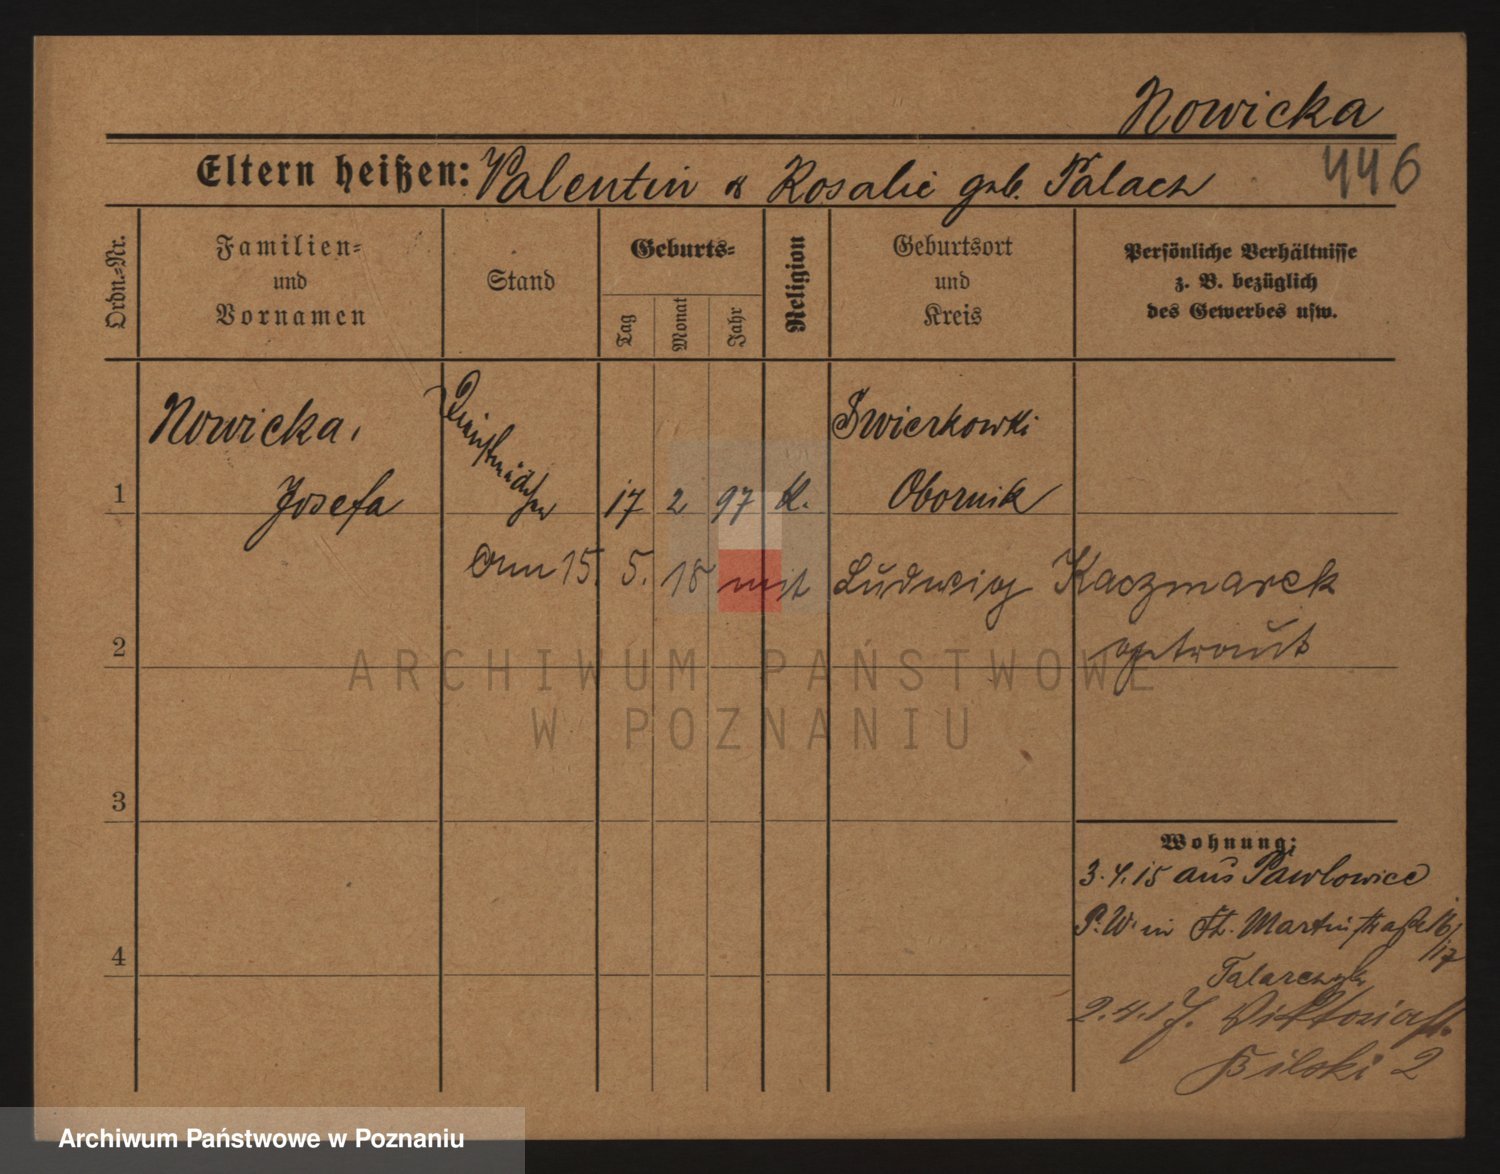 Nowicka
446
Eltern heißen: Valentin & Rosalie geb. Palacz
Ordn.-Nr.
Familien-
und
Vornamen
Stand
Geburts-
Tag
Monat
Jahr
Religion
Geburtsort
und
Kreis
Persönliche Verhältnisse
z. B. bezüglich
des Gewerbes usw.
1
Nowicka,
Josefa
Dienstmädchen
17 2 97 K.
Swierkowki
Obornik
am 15. 5. 18 mit Ludwig Kaczmarek
getraut
2
3
4
Wohnung:
3.4.15 aus Pawlowice
P. W. in St. Martinstraße 16/17
Talarczyk
2.4.17. Viktoriast.
Bilski 2
ARCHIWUM PAŃSTWOWE
W POZNANIU
Archiwum Państwowe w Poznaniu